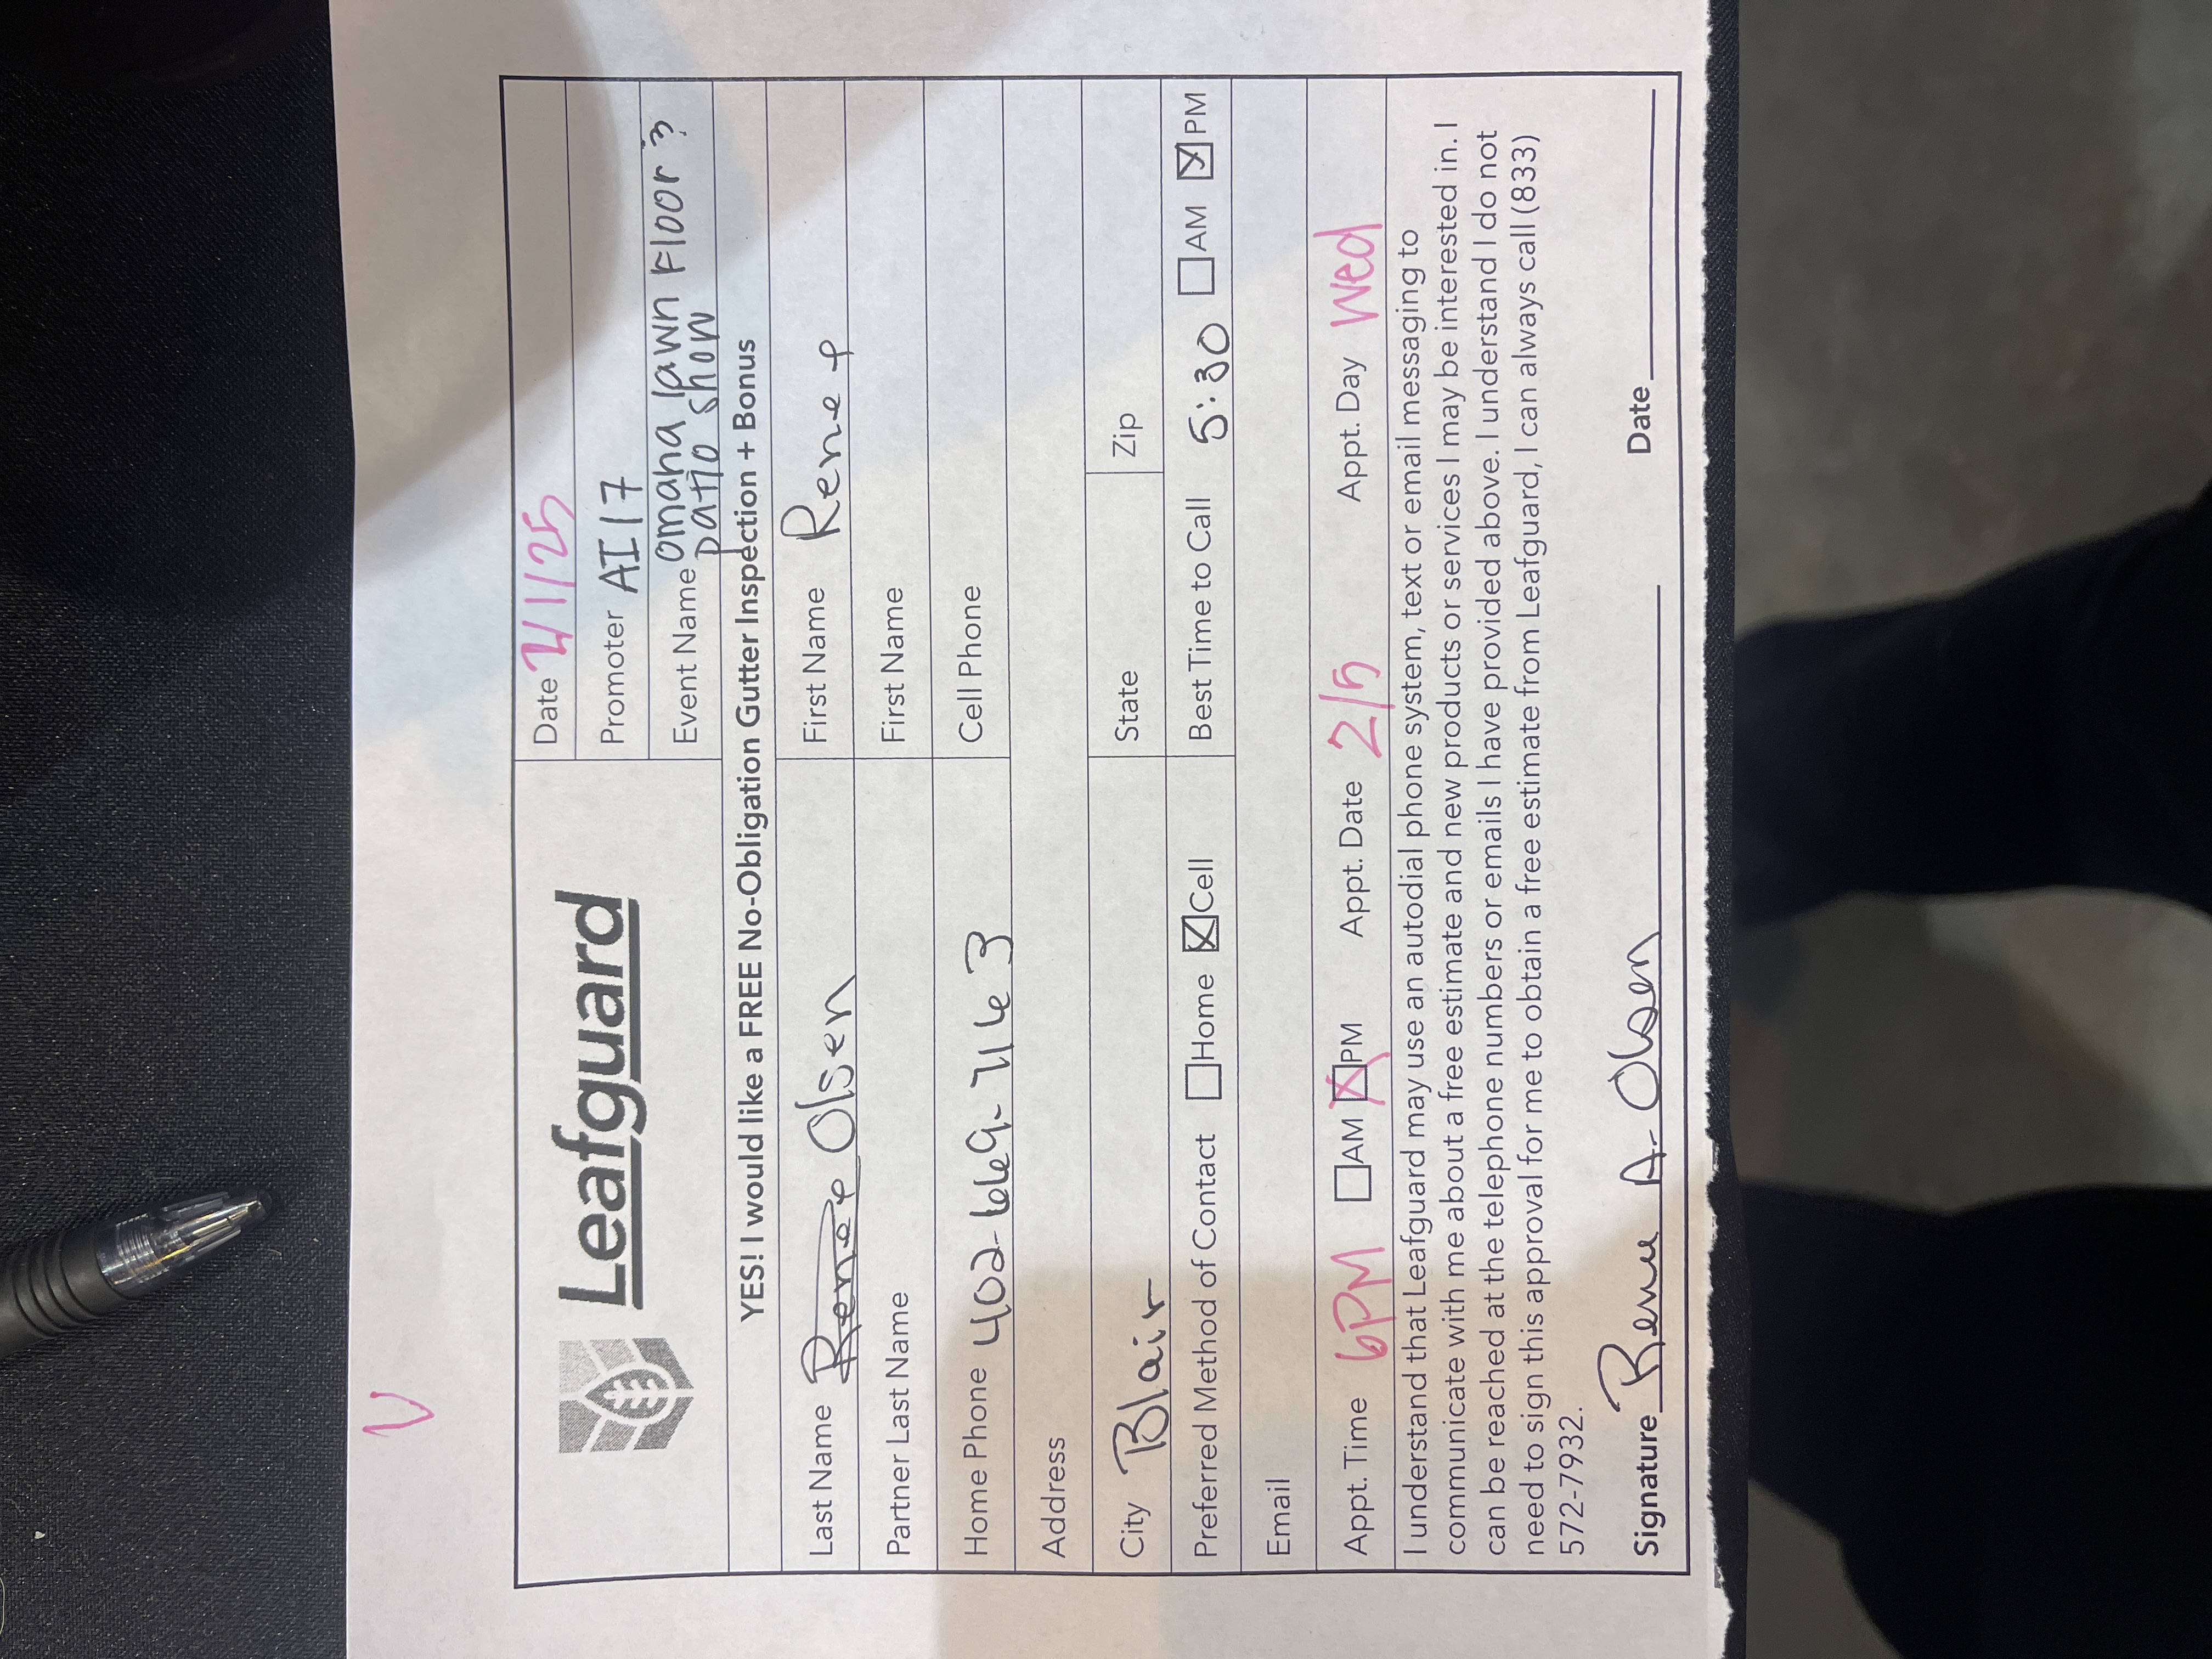 V
Leafguard
Date 2/1/25
Promoter AI17
Event Name omaha lawn Floor &
patio show
YES! I would like a FREE No-Obligation Gutter Inspection + Bonus
Last Name Renee Olsen First Name Renee
Partner Last Name First Name
Home Phone 402-669-7163 Cell Phone
Address
City Blair State Zip
Preferred Method of Contact Home Cell Best Time to Call 5:30 AM PM
Email
Appt. Time 6PM AM PM Appt. Date 2/5 Appt. Day Wed
I understand that Leafguard may use an autodial phone system, text or email messaging to
communicate with me about a free estimate and new products or services I may be interested in. I
can be reached at the telephone numbers or emails I have provided above. I understand I do not
need to sign this approval for me to obtain a free estimate from Leafguard, I can always call (833)
572-7932.
Signature Renee A. Olsen Date